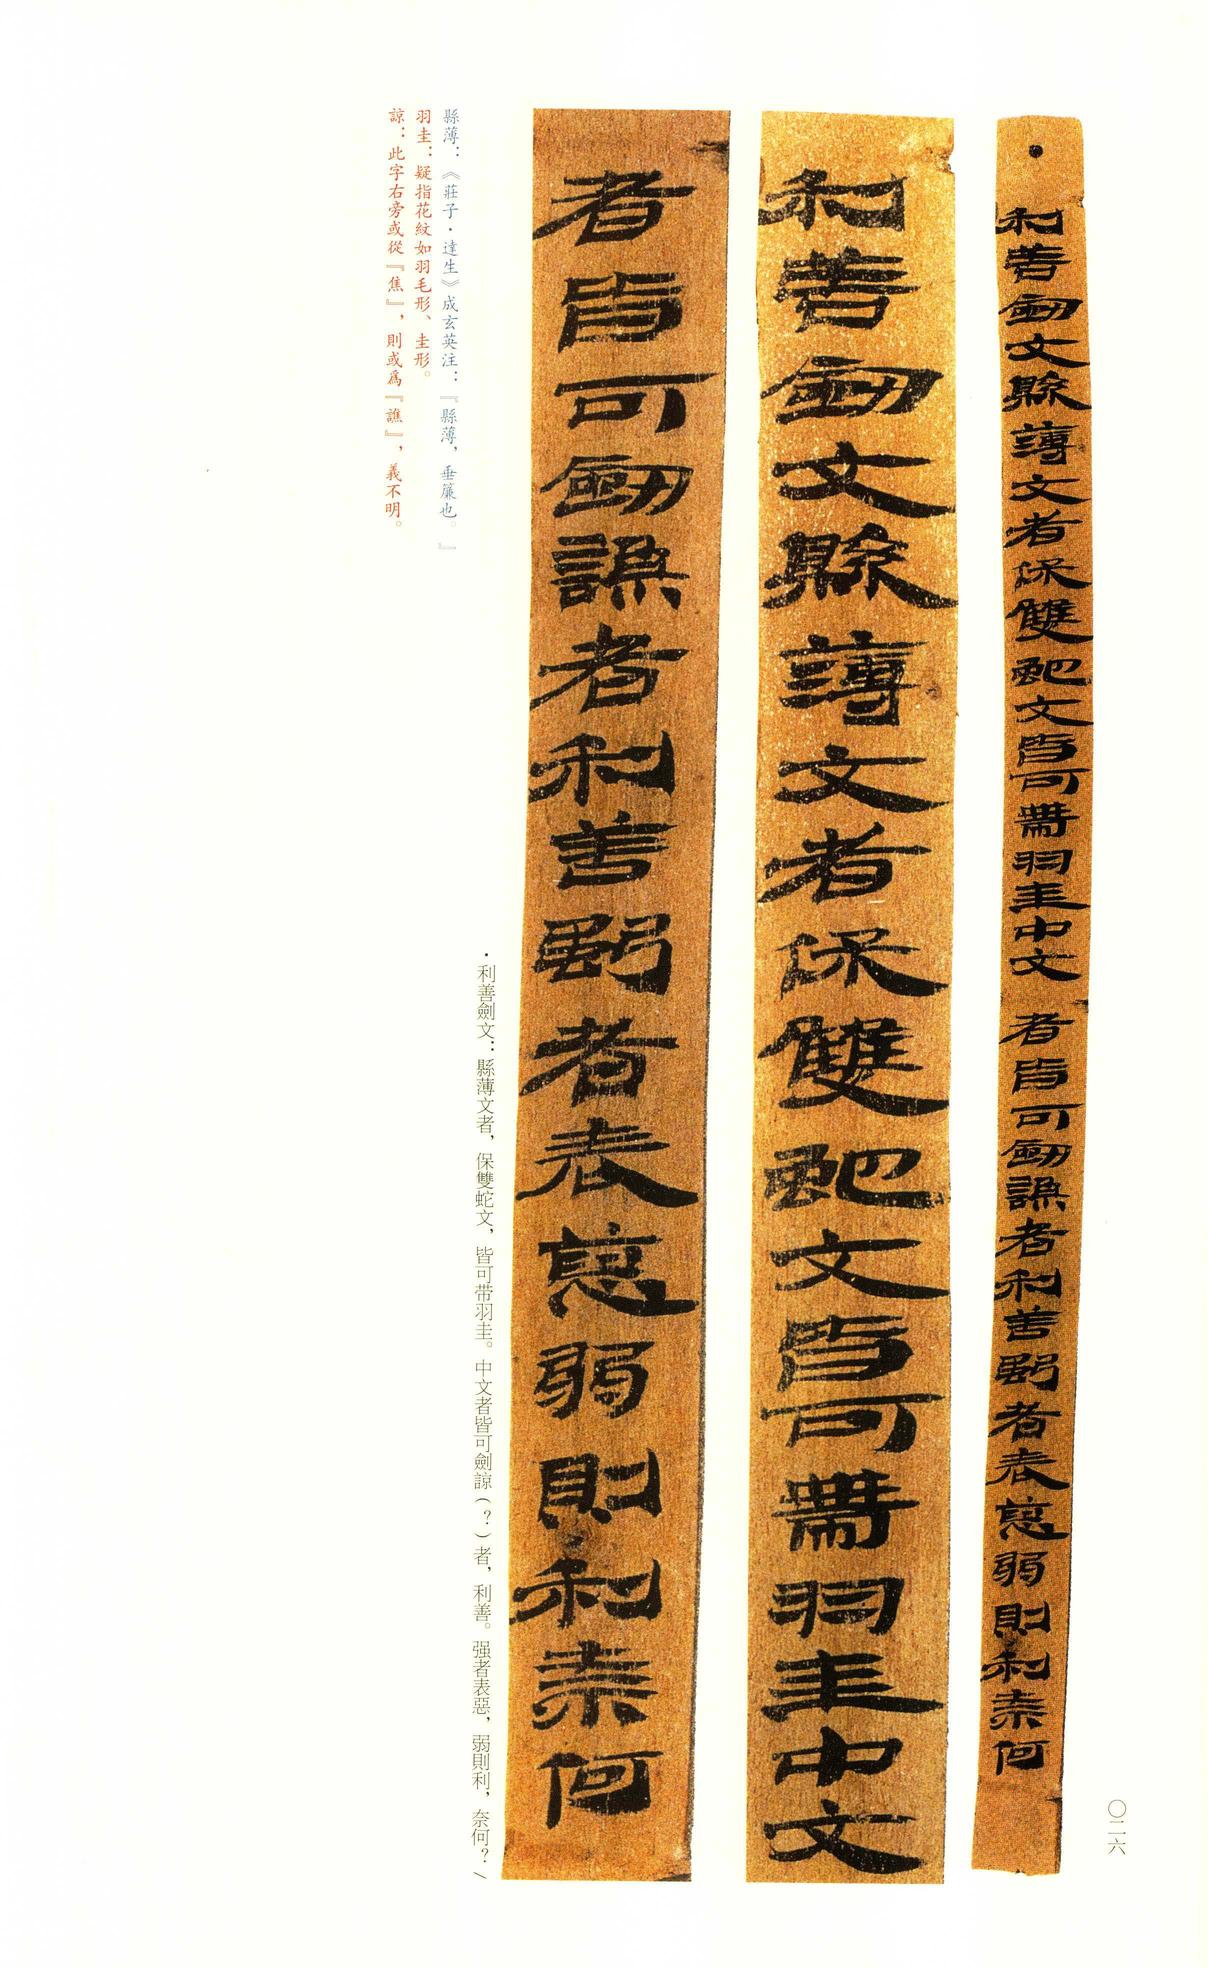 •利善劍文縣薄文者保雙蛇文皆可帶羽圭中文者皆可劍諒者利善強者表惡弱則利奈何
利善劍文縣薄文者保雙蛇文皆可帶羽圭中文
者皆可劍諒者利善強者表惡弱則利奈何
·利善劍文：縣薄文者，保雙蛇文，皆可带羽圭。中文者皆可劍諒（？）者，利善。强者表惡，弱則利，奈何？/
縣薄：《莊子·達生》成玄英注：『縣薄，垂簾也。』
羽圭：疑指花紋如羽毛形、圭形。
諒：此字右旁或從『焦』，則或爲『譙』，義不明。
〇二六